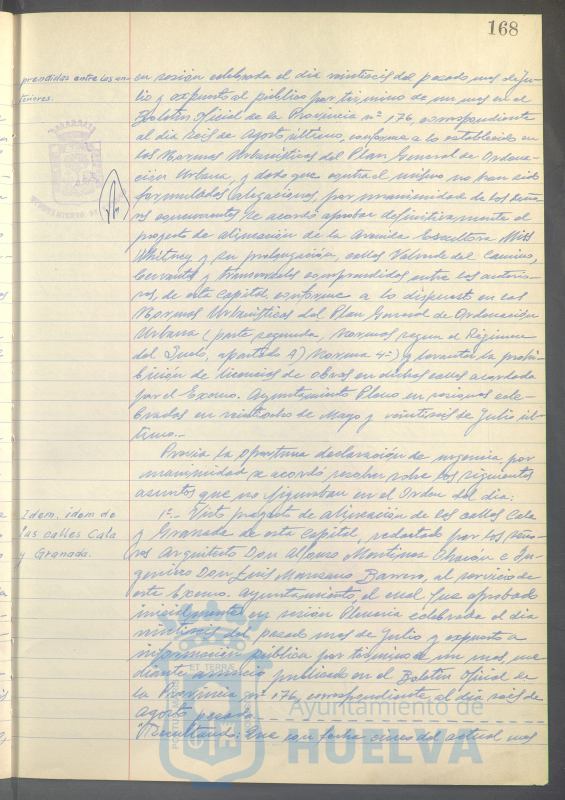 168
prendidas entre las an-
teriores.
en sesión celebrada el día veintiseis del pasado mes de Ju-
lio y expuesto al público por término de un mes en el
Boletín Oficial de la Provincia nº 176, correspondiente
al día seis de Agosto último, conforme a lo establecido en
las Normas Urbanísticas del Plan General de Ordena-
ción Urbana, y dado que contra el mismo no han sido
formuladas alegaciones, por unanimidad de los seño-
res concurrentes se acordó aprobar definitivamente el
proyecto de alineación de la Avenida Escultora Miss
Whitney y su prolongación, calles Valverde del Camino,
Cervantes y transversales comprendidas entre las anterio-
res, de esta capital, conforme a lo dispuesto en las
Normas Urbanísticas del Plan General de Ordenación
Urbana (parte segunda, Normas según el Régimen
del Suelo, apartado A) Norma 4ª) y levantar la prohi-
bición de licencias de obras en dichas calles acordada
por el Excmo. Ayuntamiento Pleno en sesiones cele-
bradas en veintiocho de Mayo y veintiseis de Julio úl-
timo.-
Previa la oportuna declaración de urgencia por
unanimidad se acordó resolver sobre los siguientes
asuntos que no figuraban en el Orden del día:
Idem, idem de
las calles Cala
y Granada.
1º- Visto proyecto de alineación de las calles Cala
y Granada de esta capital, redactado por los seño-
res Arquitecto Don Alfonso Martínez Chacón e In-
geniero Don Luis Manzano Barrero, al servicio de
este Excmo. Ayuntamiento, el cual fue aprobado
inicialmente en sesión Plenaria celebrada el día
veintiseis del pasado mes de Julio y expuesto a
información pública por término de un mes, me-
diante anuncio publicado en el Boletín Oficial de
la Provincia nº 176, correspondiente al día seis de
agosto pasado.
Resultando: Que con fecha cinco del actual mes
ET TERRÆ
Ayuntamiento de
HUELVA